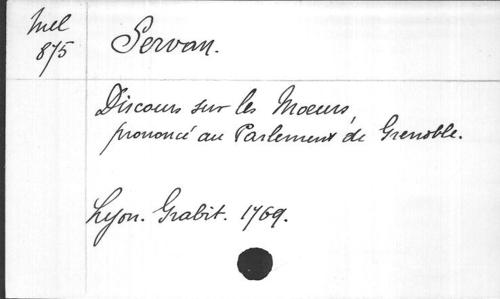 Mel
875
Servan.
Discours sur les Moeurs,
prononcé au Parlement de Grenoble.
Lyon. Grabit. 1769.